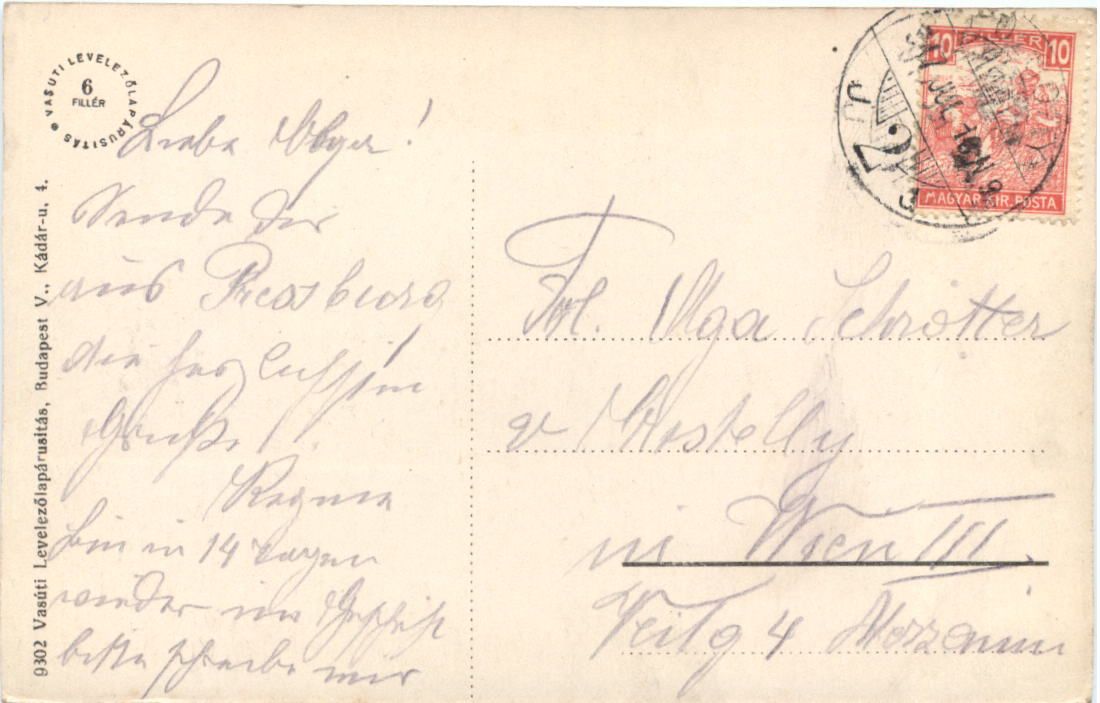 VASUTI LEVELEZŐLAPÁRUSITÁS
6
FILLÉR
9302 Vasúti Levelezőlapárusitás, Budapest V., Kádár-u. 4.
10 FILLÉR 10
MAGYAR KIR. POSTA
Liebe Olga!
Sende Dir
aus Pressburg
die herzlichsten
Grüße
Regina
bin in 14 Tagen
wieder im Geschäft
bitte schreibe mir
Frl. Olga Schrötter
in Wien III